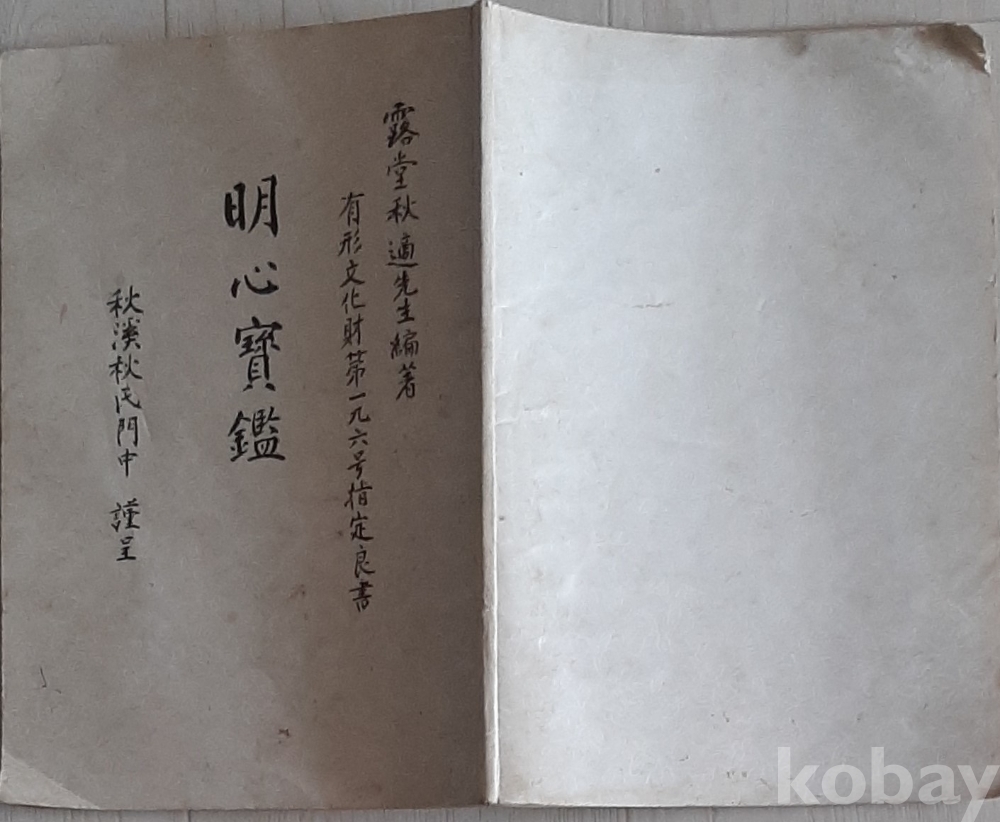 露堂秋適先生編著
有形文化財第一九六号指定良書
明心寶鑑
秋溪秋氏門中 謹呈
kobay